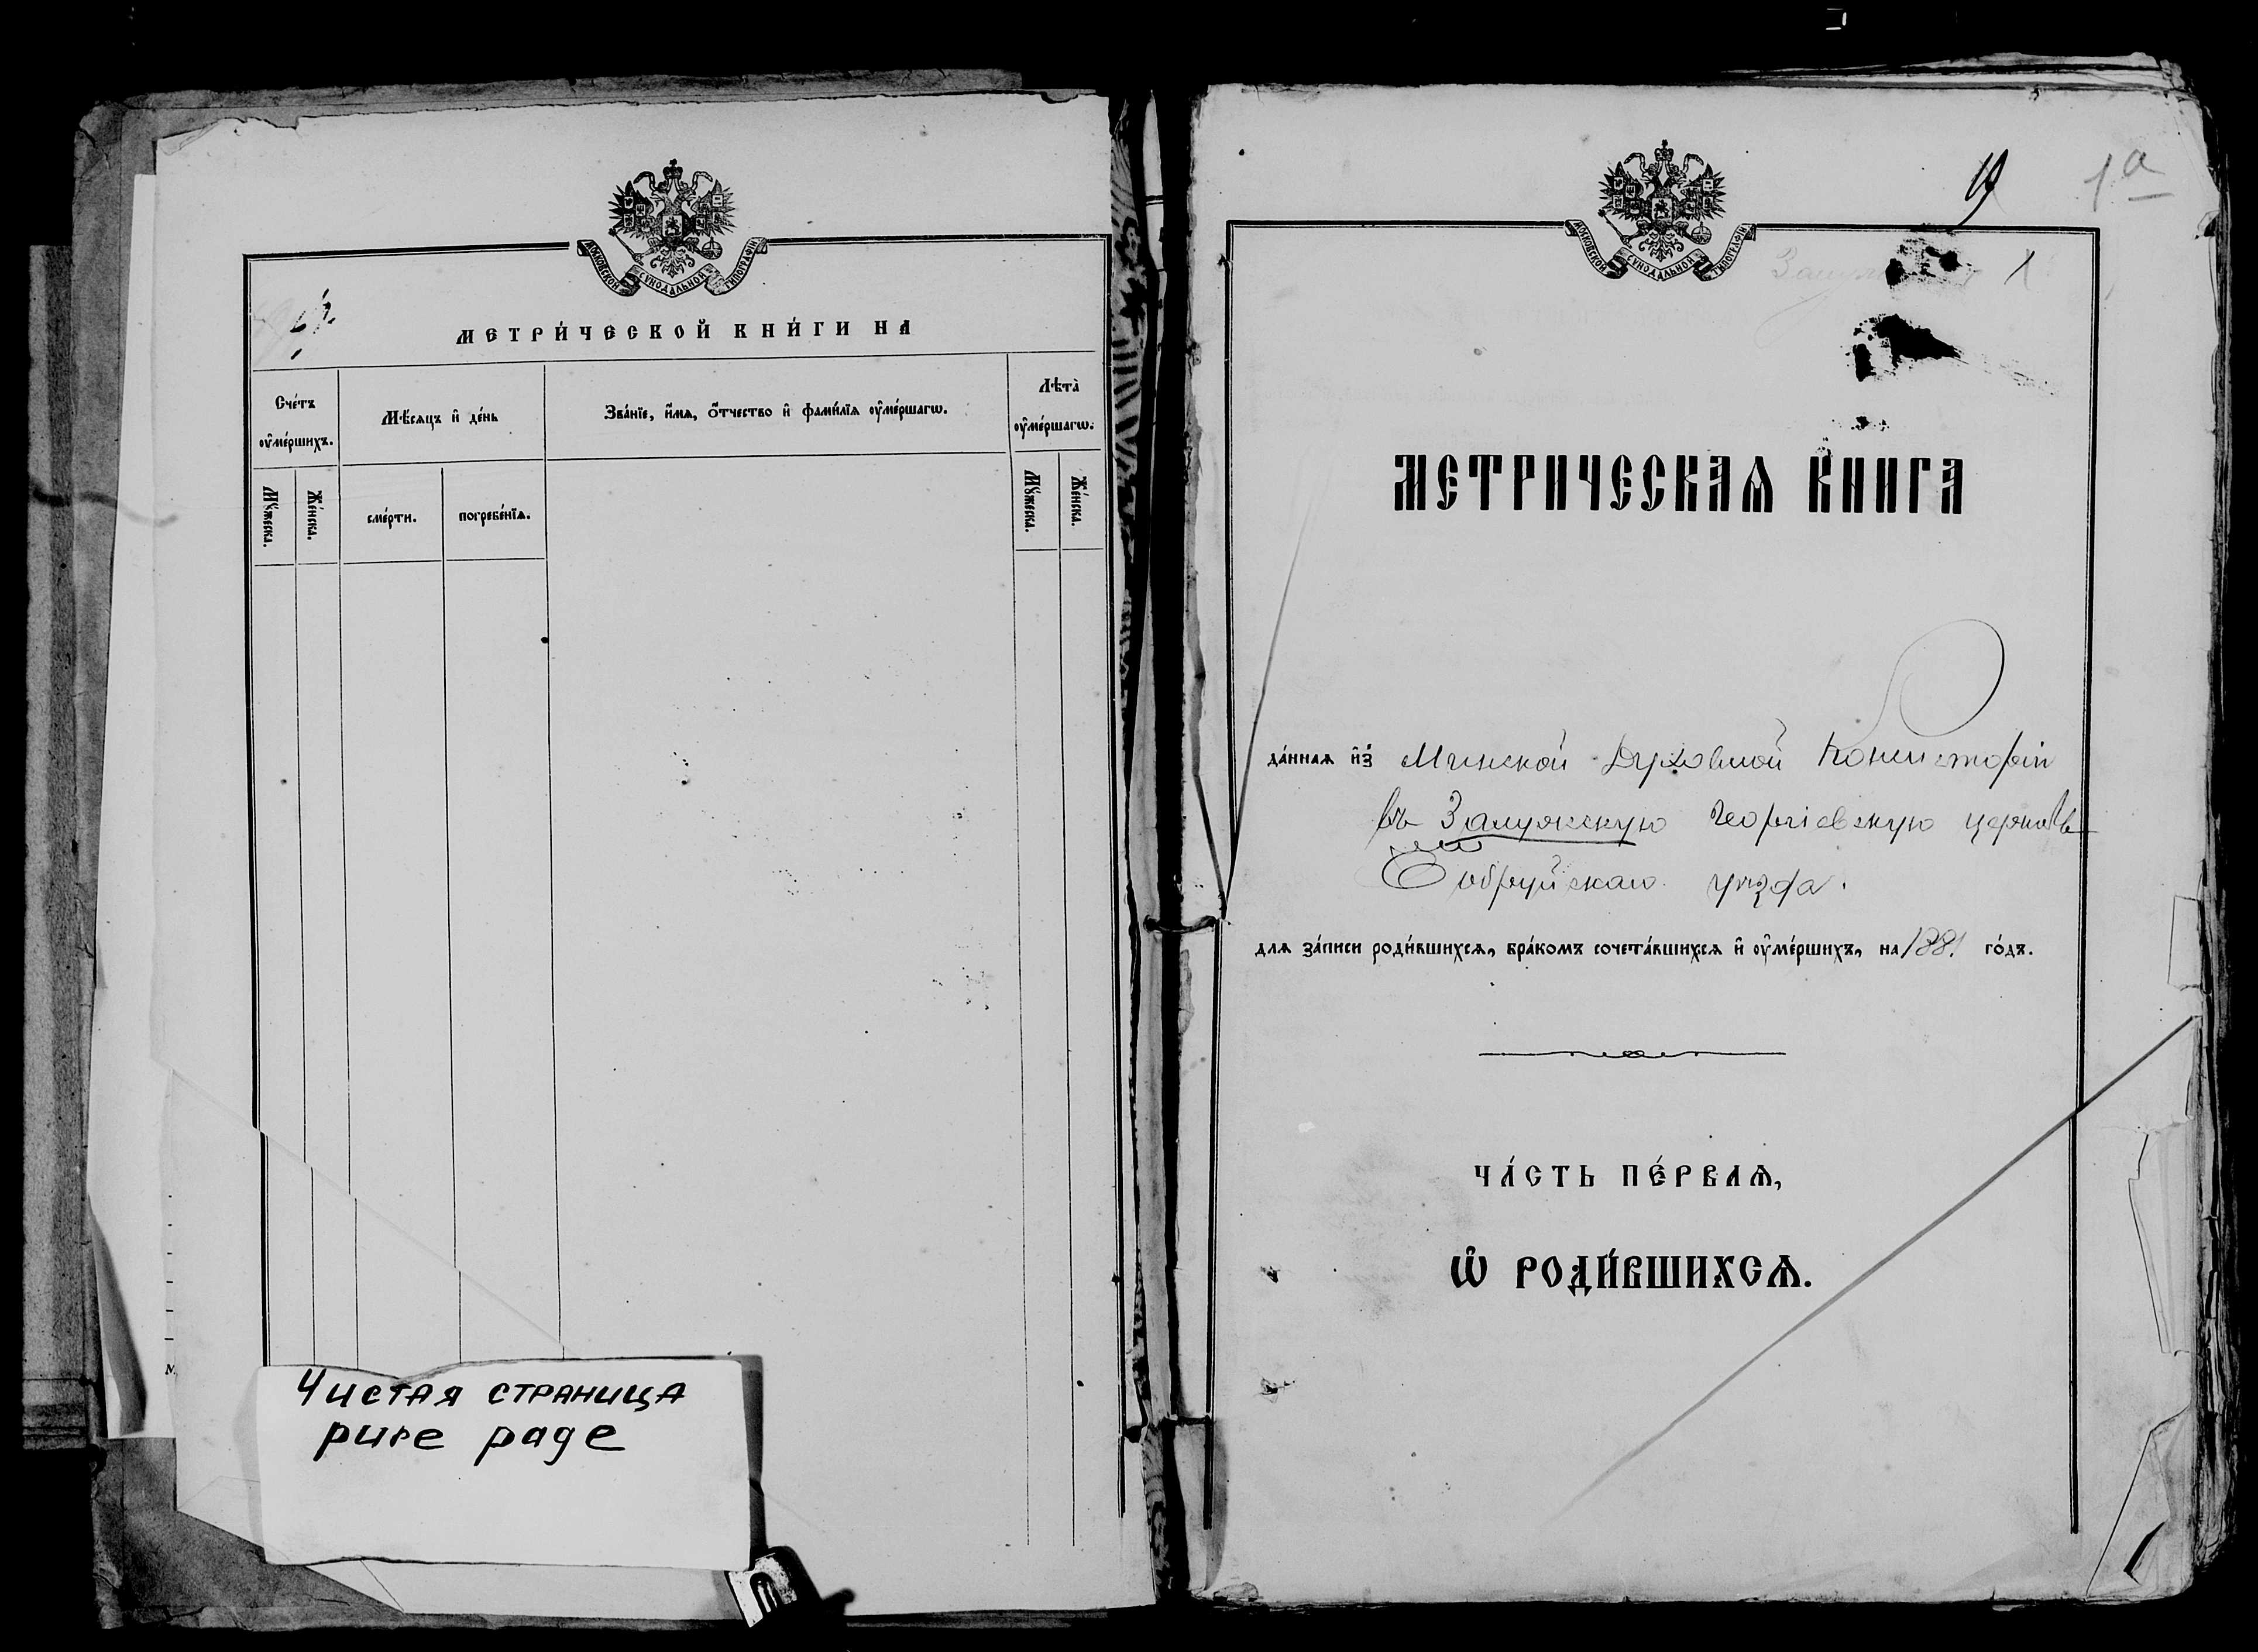 МОСКОВСКОЙ СУНОДАЛЬНОЙ ТИПОГРАФІИ
МЕТРИ́ЧЕСКОЙ КНИ́ГИ НА
Сче́тъ ᲂу҆ме́ршихъ.
Мѣ́сяцъ и҆ де́нь
Зва́нїе, и҆́мя, ѻ҆́тчество и҆ фами́лїя ᲂу҆ме́ршагѡ.
Лѣта̀ ᲂу҆ме́ршагѡ.
Мꙋ́жеска.
Же́нска.
сме́рти.
погребе́нїя.
Мꙋ́жеска.
Же́нска.
Чистая страница
pure page
19
1а
МОСКОВСКОЙ СУНОДАЛЬНОЙ ТИПОГРАФІИ
1
МЕТРИЧЕСКАѦ КНИГА
да́нная и҆з̾ Минской Духовной Консисторіи
въ Залужскую Георгіевскую церковь
Бобруйскаго уѣзда.
для за́писи роди́вшихся, бра́комъ сочета́вшихся и҆ ᲂу҆ме́ршихъ, на 1881 го́дъ.
ЧА́СТЬ ПЕ́РВАѦ,
Ѡ҆ РОДИ́ВШИХСѦ.